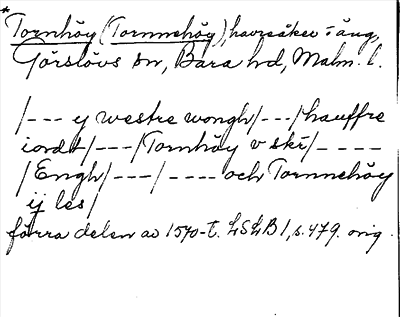 * Tornhöy (Tornnehöy), havresåker o äng,
Görslövs sn, Bara hd, Malm. l.
/--- y westre wongh/---/hauffre
iordt/---/Tornhöy v skr/----
/Engh/---/----och Tornnehöy
ij les/
förra delen av 1570-t. LSLB 1, s. 479. orig.